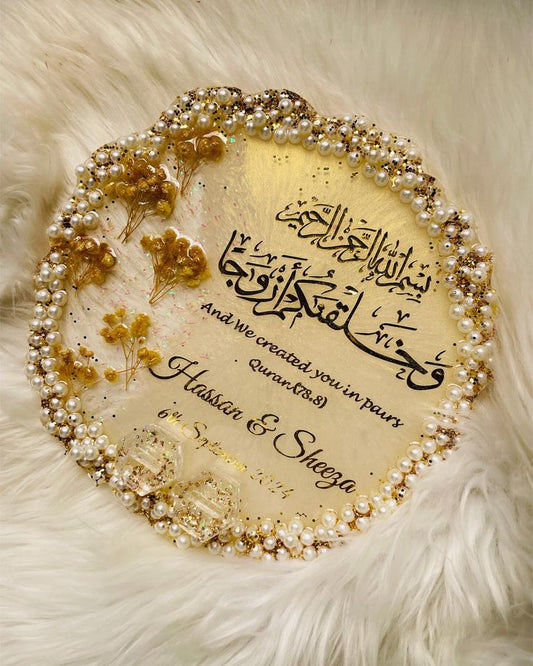 بسم الله الرحمن الرحيم
وخلقنكم أزوجا
And We created you in pairs
Quran(78:8)
Hassan & Sheeza
6th September 2024